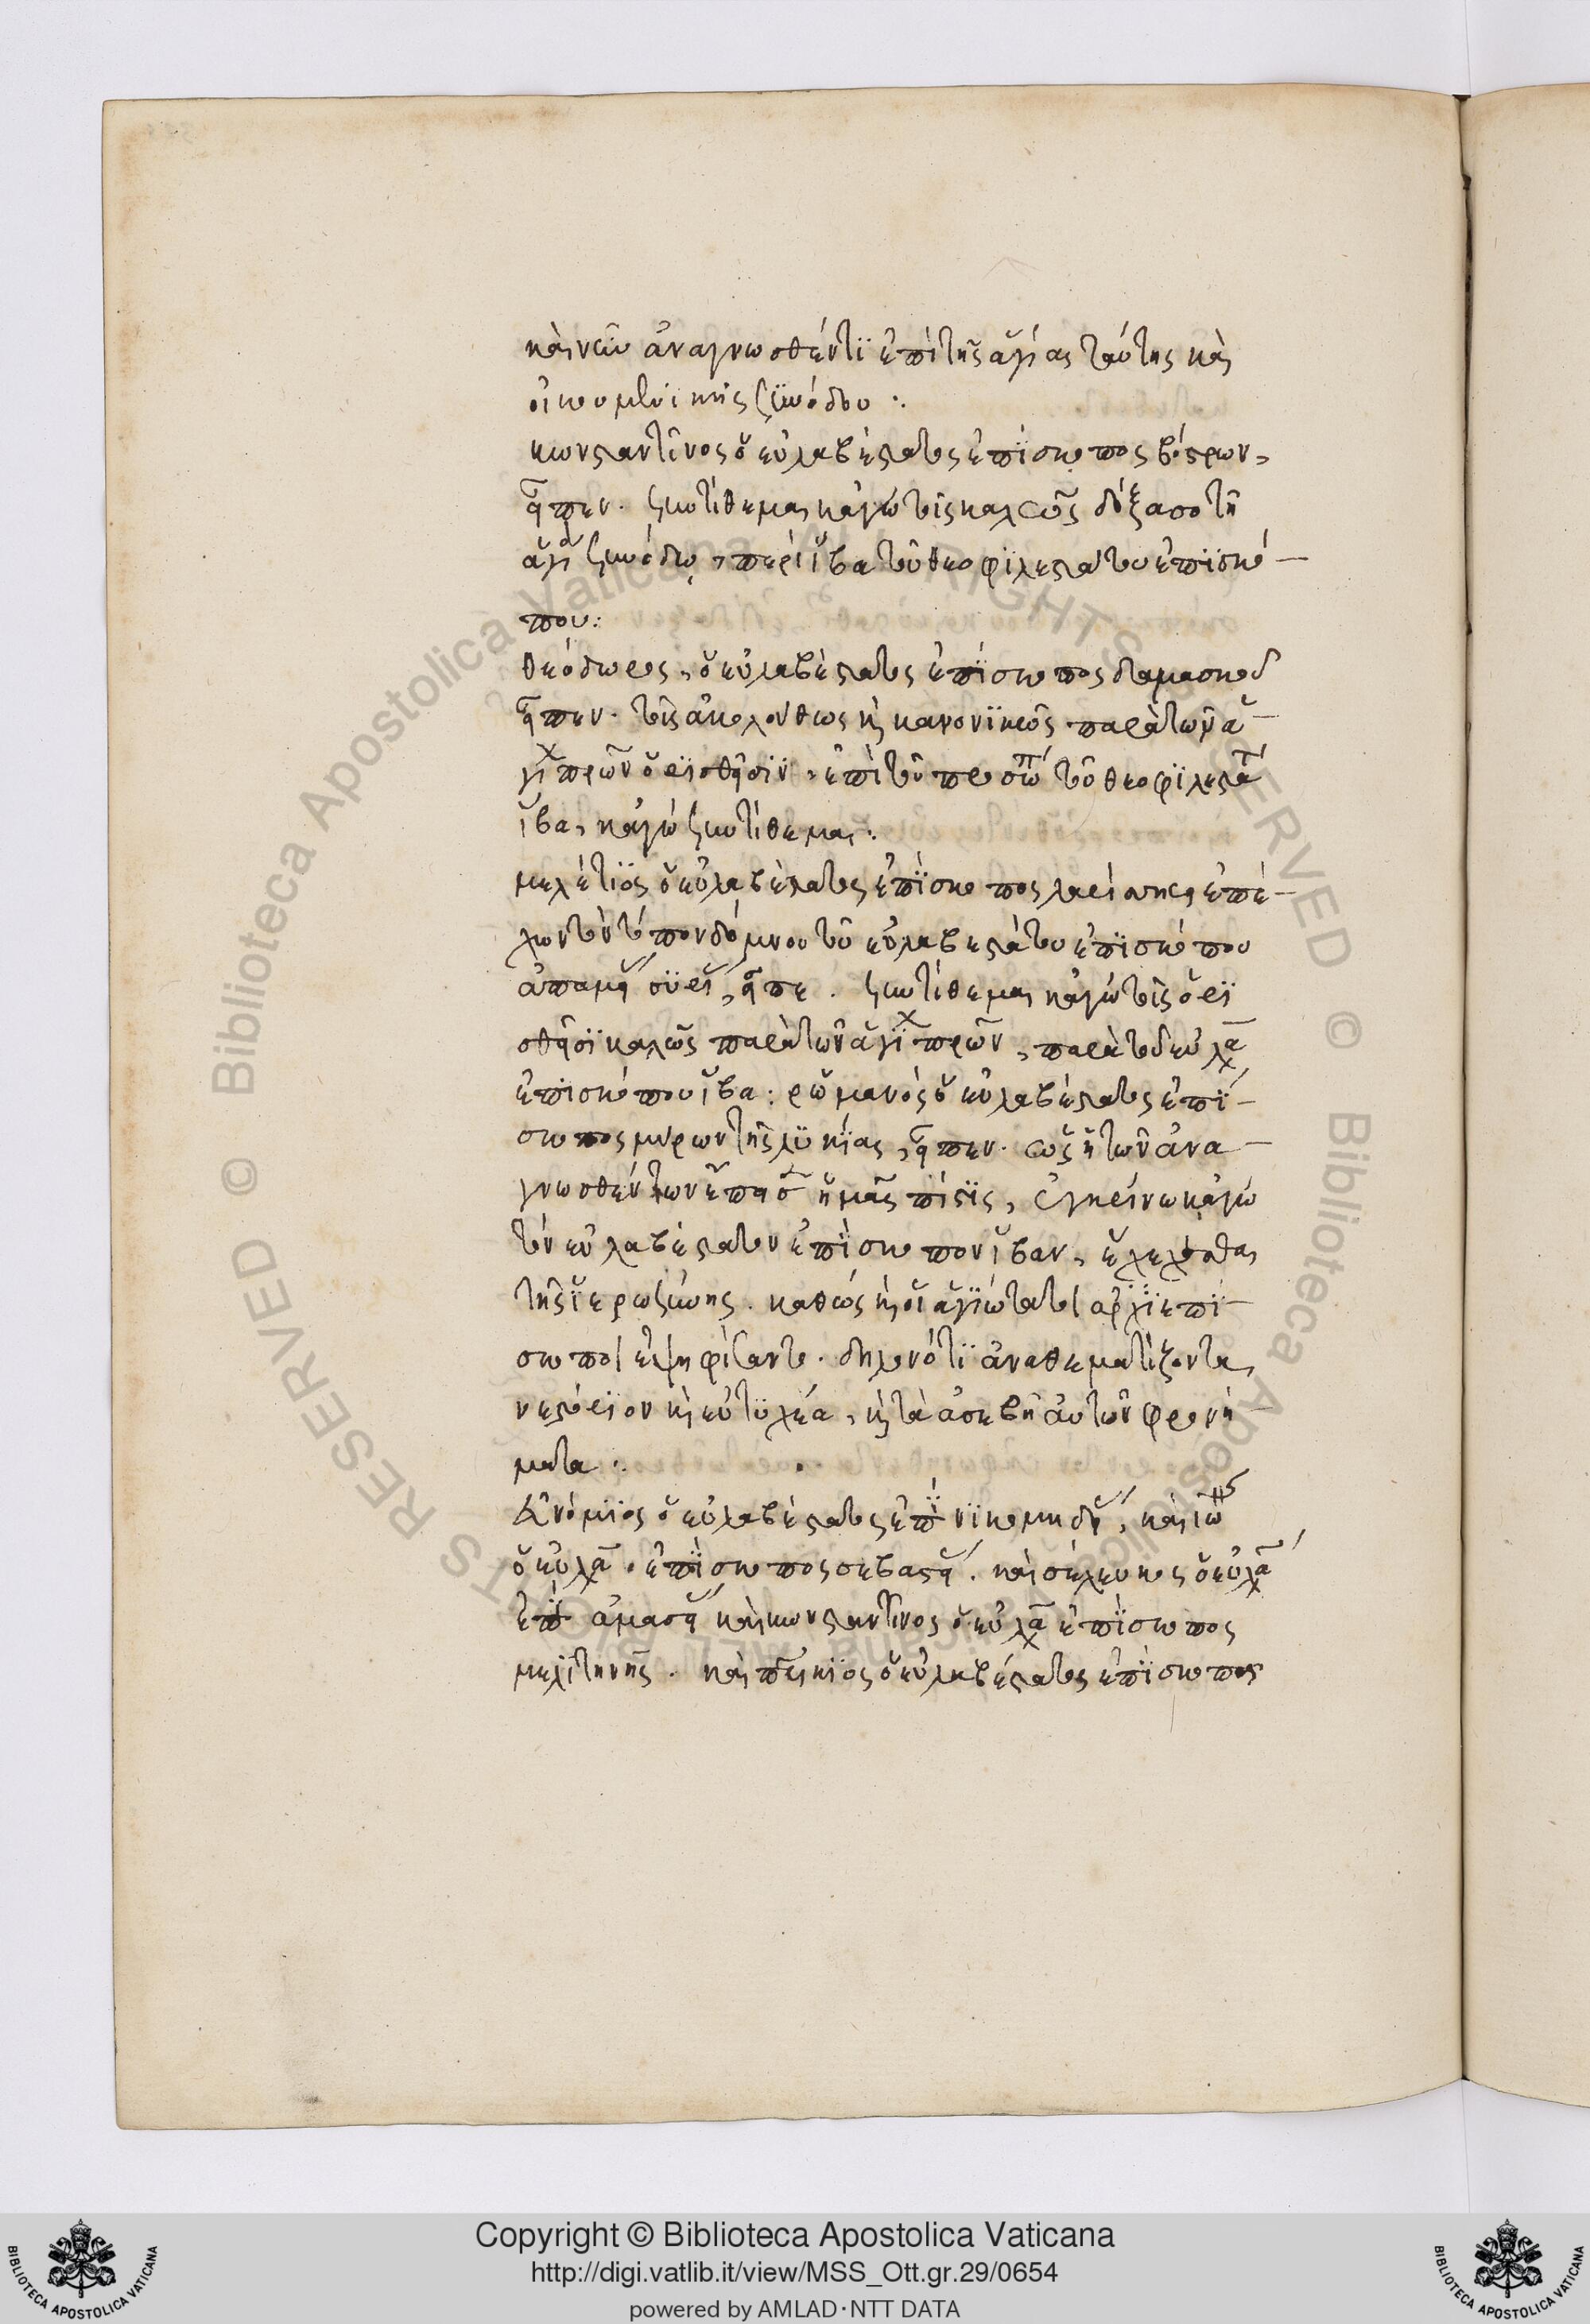 καὶ νῦν ἀναγνωσθέντϊ ἐπὶ τῆς ἁγίας ταύτης καὶ
οἰκουμενικῆς συνόδου :.
κωνσταντῖνος ὁ εὐλαβέστατος ἐπίσκοπος βόστρων,
εἶπεν. συντίθεμαι κἀγὼ τοῖς καλῶς δόξασι τῆ
ἁγί συνόδω, περὶ ἴβα τοῦ θεοφϊλεστάτου ἐπϊσκό-
που:
θεόδωρος, ὁ εὐλαβέστατος ἐπίσκοπος δαμασκοῦ
εἶπεν. τοῖς ἀκολούθως κὶ κανονϊκῶς παρὰ τῶν ἁ-
γϊ πρῶν ὁρϊσθεῖσϊν, ἐπὶ τοῦ προσώπ τοῦ θεοφϊλεστάτ
ἴβα, κἀγὼ συντίθεμαι :
μελέτϊος ὁ εὐλαβέστατος ἐπϊσκοπος λαρίσσης ἐπέ-
χων τὸν τόπον δόμνου τοῦ εὐλαβεστάτου ἐπϊσκόπου
ἀπαμεί συρί, εἶπε. συντίθεμαι κἀγὼ τοῖς ὁρϊ
σθεῖσϊ καλῶς παρὰ τῶν ἁγϊ πρῶν, παρὰ τοῦ εὐλα
ἐπϊσκόπου ἴβα : ρωμανὸς ὁ εὐλαβέστατος ἐπϊ-
σκοπος μύρων τῆς λϋκίας, εἶπεν. ὡς ἡ τῶν ἀνα-
γνωσθέντων ἔπεισ ἡμᾶς πίστϊς, ἐγκρίνω κἀγὼ
τὸν εὐλαβέστατον ἐπϊσκοπον ἴβαν, ἔχεσθαι
τῆς ἱερωσύνης. καθὼς κὶ οἱ ἁγϊώτατοι ἀρχϊεπϊ-
σκοποι ἐψηφίσαντο. δηλονότϊ ἀναθεματίζοντα,
νεστόρϊον κὶ εὐτϋχέα, κὶ τὰ ἀσεβῆ αὐτῶν φρονή
ματα :.
εὐνόμϊος ὁ εὐλαβέστατος ἐπ νϊκομηδεί, καὶ ἰω
ὁ εὐλα. ἐπίσκοπος σεβαστεί. καὶ σέλευκος ὁ εὐλα
ἐπ ἀμασεί καὶ κωνσταντῖνος ὁ εὐλα ἐπϊσκοπος
μελϊτηνῆς. καὶ πατρίκϊος ὁ εὐλαβέστατος ἐπίσκοπος
Copyright © Biblioteca Apostolica Vaticana
http://digi.vatlib.it/view/MSS_Ott.gr.29/0654
powered by AMLAD·NTT DATA